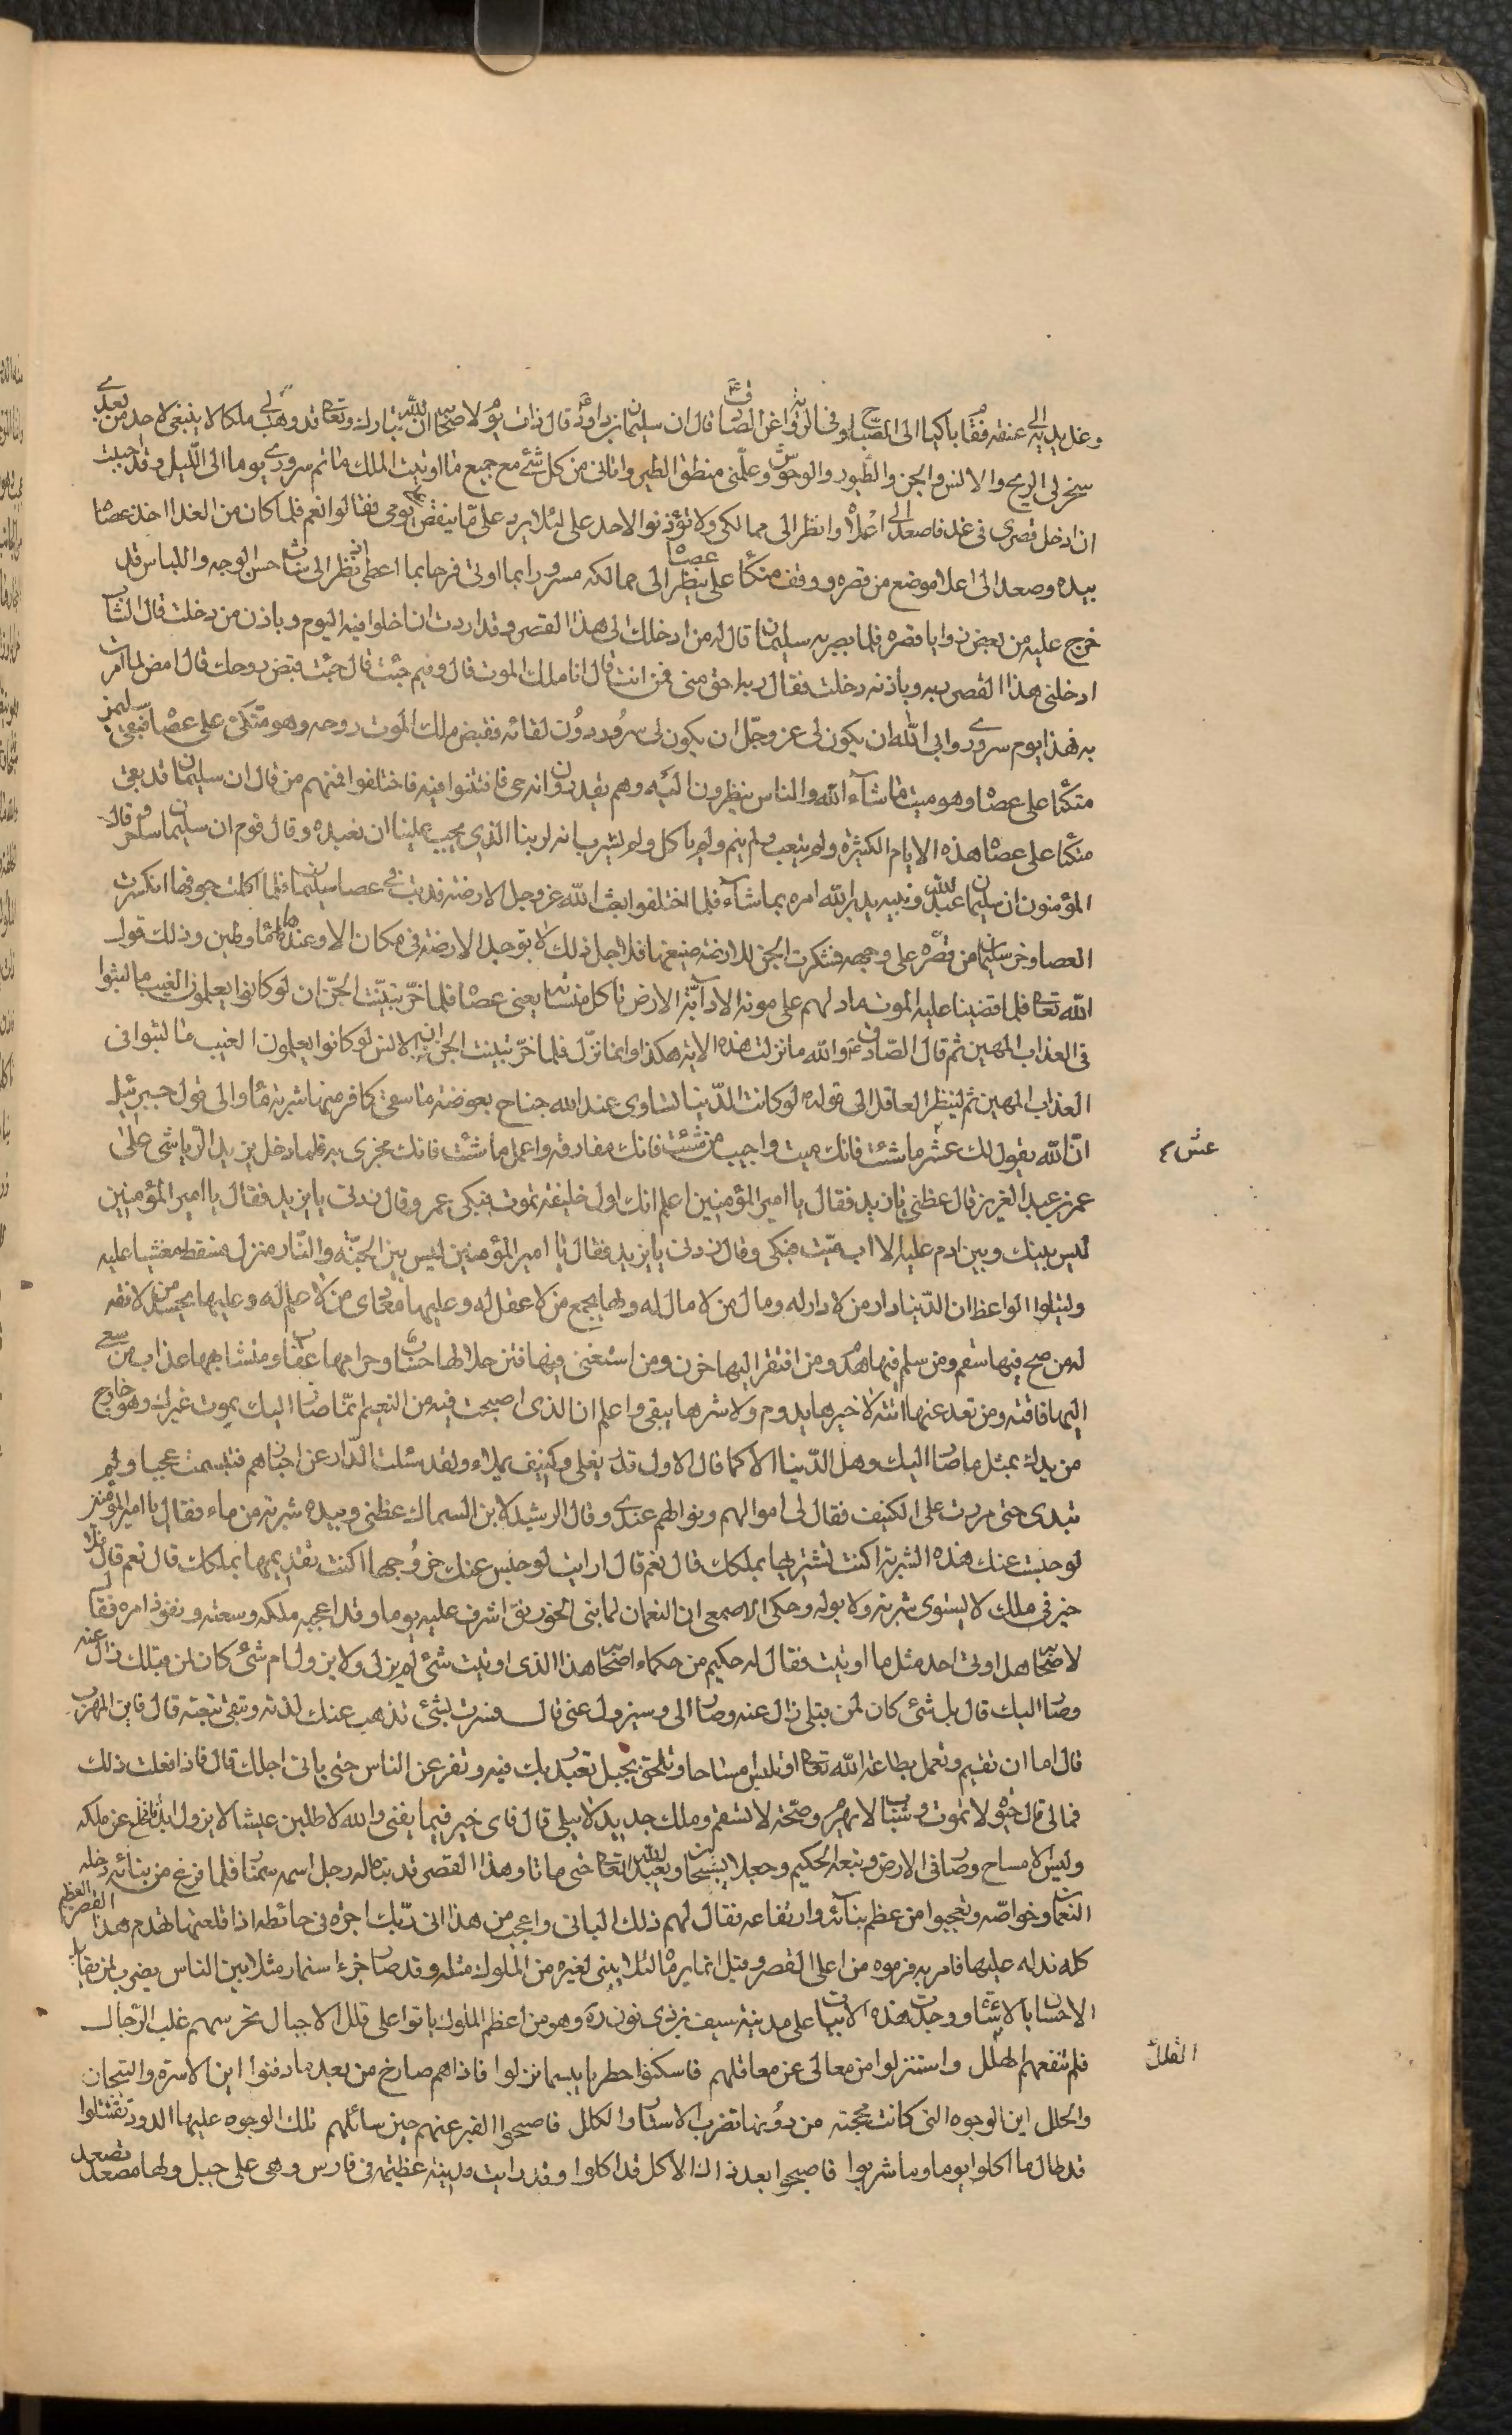 وغل يديه الى عنقه فقام باكيا الى الصباح وفي الرواية عن الصادق ع قال ان سليمان بن داود ع قال ذات يوم لاصحابه ان الله تبارك وتعالى قد وهب لي ملكا لا ينبغي لاحد من بعدي
سخر لي الريح والانس والجن والطيور والوحوش وعلمني منطق الطير واتاني من كل شئ مع جميع ما اوتيت الملك ما تم سروري يوما الى الليل وقد احببت
ان ادخل قصري في غد فاصعد الى اعلاه وانظر الى ممالكي ولا تؤذنوا لاحد على لئلا يرد على ما ينغص علي يومي فقالوا نعم فلما كان من الغد اخذ عصاه
بيده وصعد الى اعلا موضع من قصره ووقف متكئا على عصاه ينظر الى ممالكه مسرورا بما اوتي فرحا بما اعطي اذ نظر الى شاب حسن الوجه واللباس قد
خرج عليه من بعض زوايا قصره فلما بصر به سليمان قال له من ادخلك الى هذا القصر وقد اردت ان اخلوا فيه اليوم وباذن من دخلت قال الشاب
ادخلني هذا القصر ربه وباذنه دخلت فقال ربه احق مني فمن انت قال انا ملك الموت قال وفيم جئت قال جئت قبض روحك قال امض لما امرت
به فهذا يوم سروري وابى الله ان يكون لي عز وجل ان يكون لي سرور دون لقائه فقبض ملك الموت روحه وهو متكئ على عصاه فبقى سليمن
متكئا على عصاه وهو ميت ما شاء الله والناس ينظرون اليه وهم يقدرون انه حي فافتتنوا فيه فاختلفوا فمنهم من قال ان سليمان قد بقى
متكئا على عصاه هذه الايام الكثيرة ولم يتعب ولم ينم ولم ياكل ولم يشرب انه لربنا الذي يجب علينا ان نعبده وقال قوم ان سليمان ساحر وقال
المؤمنون ان سليمان عبد الله ونبيه يدبر الله امره بما شاء فلما اختلفوا بعث الله عز وجل الارضة فدبت في عصا سليمان فلما اكلت جوفها انكسرت
العصا وخر سليمان من قصره على وجهه فشكرت الجن للارضة صنيعها فلاجل ذلك لا توجد الارضة في مكان الا وعندها ماء وطين وذلك قول
الله تعالى فلما قضينا عليه الموت ما دلهم على موته الا دآبة الارض تاكل منساته يعني عصاه فلما خر تبينت الجن ان لو كانوا يعلمون الغيب ما لبثوا
في العذاب المهين ثم قال الصادق ع والله ما نزلت هذه الاية هكذا وانما نزل فلما خر تبينت الجن ان الانس لو كانوا يعلمون الغيب ما لبثوا في
العذاب المهين ثم لينظر العاقل الى قوله لو كانت الدنيا تساوي عند الله جناح بعوضة ما سقى كافر منها شربة ماء والى قول جبرئيل
ان الله يقول لك عش ما شئت فانك ميت واحبب من شئت فانك مفارقه واعمل ما شئت فانك مجزى به فلما دخل يزيد الرياشي على
عمر بن عبد العزيز قال عظني يا يزيد فقال يا امير المؤمنين اعلم انك اول خليفة تموت فبكى عمر وقال زدني يا يزيد فقال يا امير المؤمنين
ليس بينك وبين ادم عليه الا اب ميت فبكى وقال زدني يا يزيد فقال يا امير المؤمنين ليس بين الجنة والنار منزل فسقط مغشيا عليه
وليتلوا الواعظ ان الدنيا دار من لا دار له ومال من لا مال له ولها يجمع من لا عقل له وعليها يعادى من لا علم له وعليها يحسد من لا فقه
له من صح فيها سقم ومن سلم فيها هرم ومن افتقر اليها حزن ومن استغنى فيها فتن حلالها حساب وحرامها عقاب ومتشابهها عذاب من سعى
اليها فاتته ومن قعد عنها اتته لا خيرها يدوم ولا شرها يبقى واعلم ان الذي اصبحت فيه من النعيم انما صار اليك بموت غيرك وهو خارج
من يدك بمثل ما صار اليك وهل الدنيا الا كما قال الاول قدر يغلى وكنيف يملاء ولقد سئلت الدار عن اخبارهم فتبسمت عجبا ولم
تبدى حتى مررت على الكنيف فقال لي اموالهم ونوالهم عندي وقال الرشيد لابن السماك عظني وبيده شربة من ماء فقال يا امير المؤمنين
لو حبست عنك هذه الشربة اكنت تشتريها بملكك قال نعم قال ارايت لو حبس عنك خروجها اكنت تفديها بملكك قال نعم قال فلا
خير في ملك لا يستوى شربة ولا بوله وحكى الاصمعي ان النعمان لما بنى الخورنق اشرف عليه يوما وقد اعجبه ملكه وسعته ونفوذ امره فقال
لاصحابه هل اوتي احد مثل ما اوتيت فقال له حكيم من حكماء اصحابه هذا الذي اوتيت شئ لم يزل ولا يزول ام شئ كان لمن قبلك زال عنه
وصار اليك قال بل شئ كان لمن قبلي زال عنه وصار الى وسيزول عني قال فسررت بشئ تذهب عنك لذته وتبقى تبعته قال فاين المهرب
قال اما ان تقيم وتعمل بطاعة الله تعالى او تلبس مساحا وتلحق بجبل تعبد ربك فيه وتفر عن الناس حتى ياتي اجلك قال فاذا فعلت ذلك
فما لي قال حيوة لا تموت وشباب لا يهرم وصحة لا تسقم وملك جديد لا يبلى قال فاى خير فيما يفنى والله لاطلبن عيشا لا يزول ابدا فانخلع عن ملكه
ولبس الامساح وصار في الارض وتبعه الحكيم وجعلا يسبحان ويعبدان الله تعالى حتى ماتا وهذا القصر قد بناه له رجل اسمه سنمار فلما فرغ من بنائه دخله
النعمان وخواصه وتعجبوا من عظم بنائه وارتفاعه فقال لهم ذلك الباني واعجب من هذا اني ركبت اجرة في حائطه اذا قلعتها تهدم هذا القصر العظيم
كله ندله عليها فامر به فرموه من اعلى القصر وقيل انما يرماه لئلا يبنى لغيره من الملوك مثله وقد صار جزاء سنمار مثلا بين الناس يضرب لمن يقابل
الاحسان بالاسائة ووجدت هذه الابيات على مدينة سيف بن ذي نون ره وهو من اعظم الملوك باتوا على قلل الاجبال تحرسهم غلب الرجال
فلم تنفعهم القلل واستنزلوا من معالى عن معاقلهم فاسكنوا حفرا يا بئسما نزلوا فاذاهم صارخ من بعد ما دفنوا اين الاسرة والتيجان
والحلل اين الوجوه التي كانت محجبة من دونها تضرب الاستار والكلل فاصبحوا القبر عنهم حين سائلهم تلك الوجوه عليها الدود تقتتلوا
قد طال ما اكلوا يوما وما شربوا فاصبحوا بعد ذاك الاكل قد اكلوا وقد رايت مدينة عظيمة في فارس وهي على جبل ولها مصعد تصعد
عش
القلل